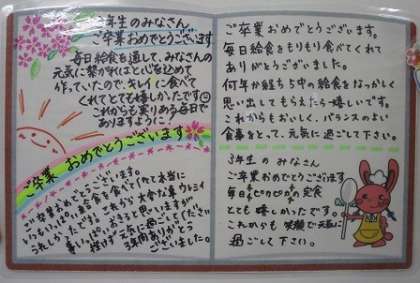 3年生のみなさん
ご卒業おめでとうございます
毎日給食を通して、みなさんの
元気に繋がればと心を込めて
作っていたので、キレイに食べて
くれてとても嬉しかったです
これからも実りある毎日で
ありますように!
ご卒業 おめでとうございます
ご卒業おめでとうございます。
いつもいっぱい給食を食べてくれて本当に
うれしかったです。これから大変な事、ウレシイ
事いっぱい起きると思いますが
挫けず元気に過ごしてください
3年間ありがとう
ございました。
ご卒業おめでとうございます。
毎日給食をもりもり食べてくれて
ありがとうございました。
何年か経ち5中の給食をなつかしく
思い出してもらえたら嬉しいです。
これからもおいしく、バランスのよい
食事をとって、元気に過ごして下さい。
3年生の みなさん
ご卒業おめでとうございます
毎日ピカピカの完食
とても嬉しかったです。
これからも 笑顔で元気に
過ごして下さい。